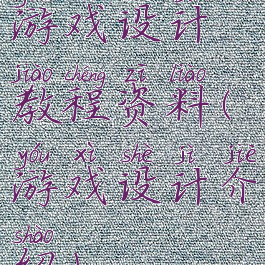 游戏设计
jiào chéng zī liào
教程资料(
yóu xì shè jì jiè
游戏设计介
shào
绍)